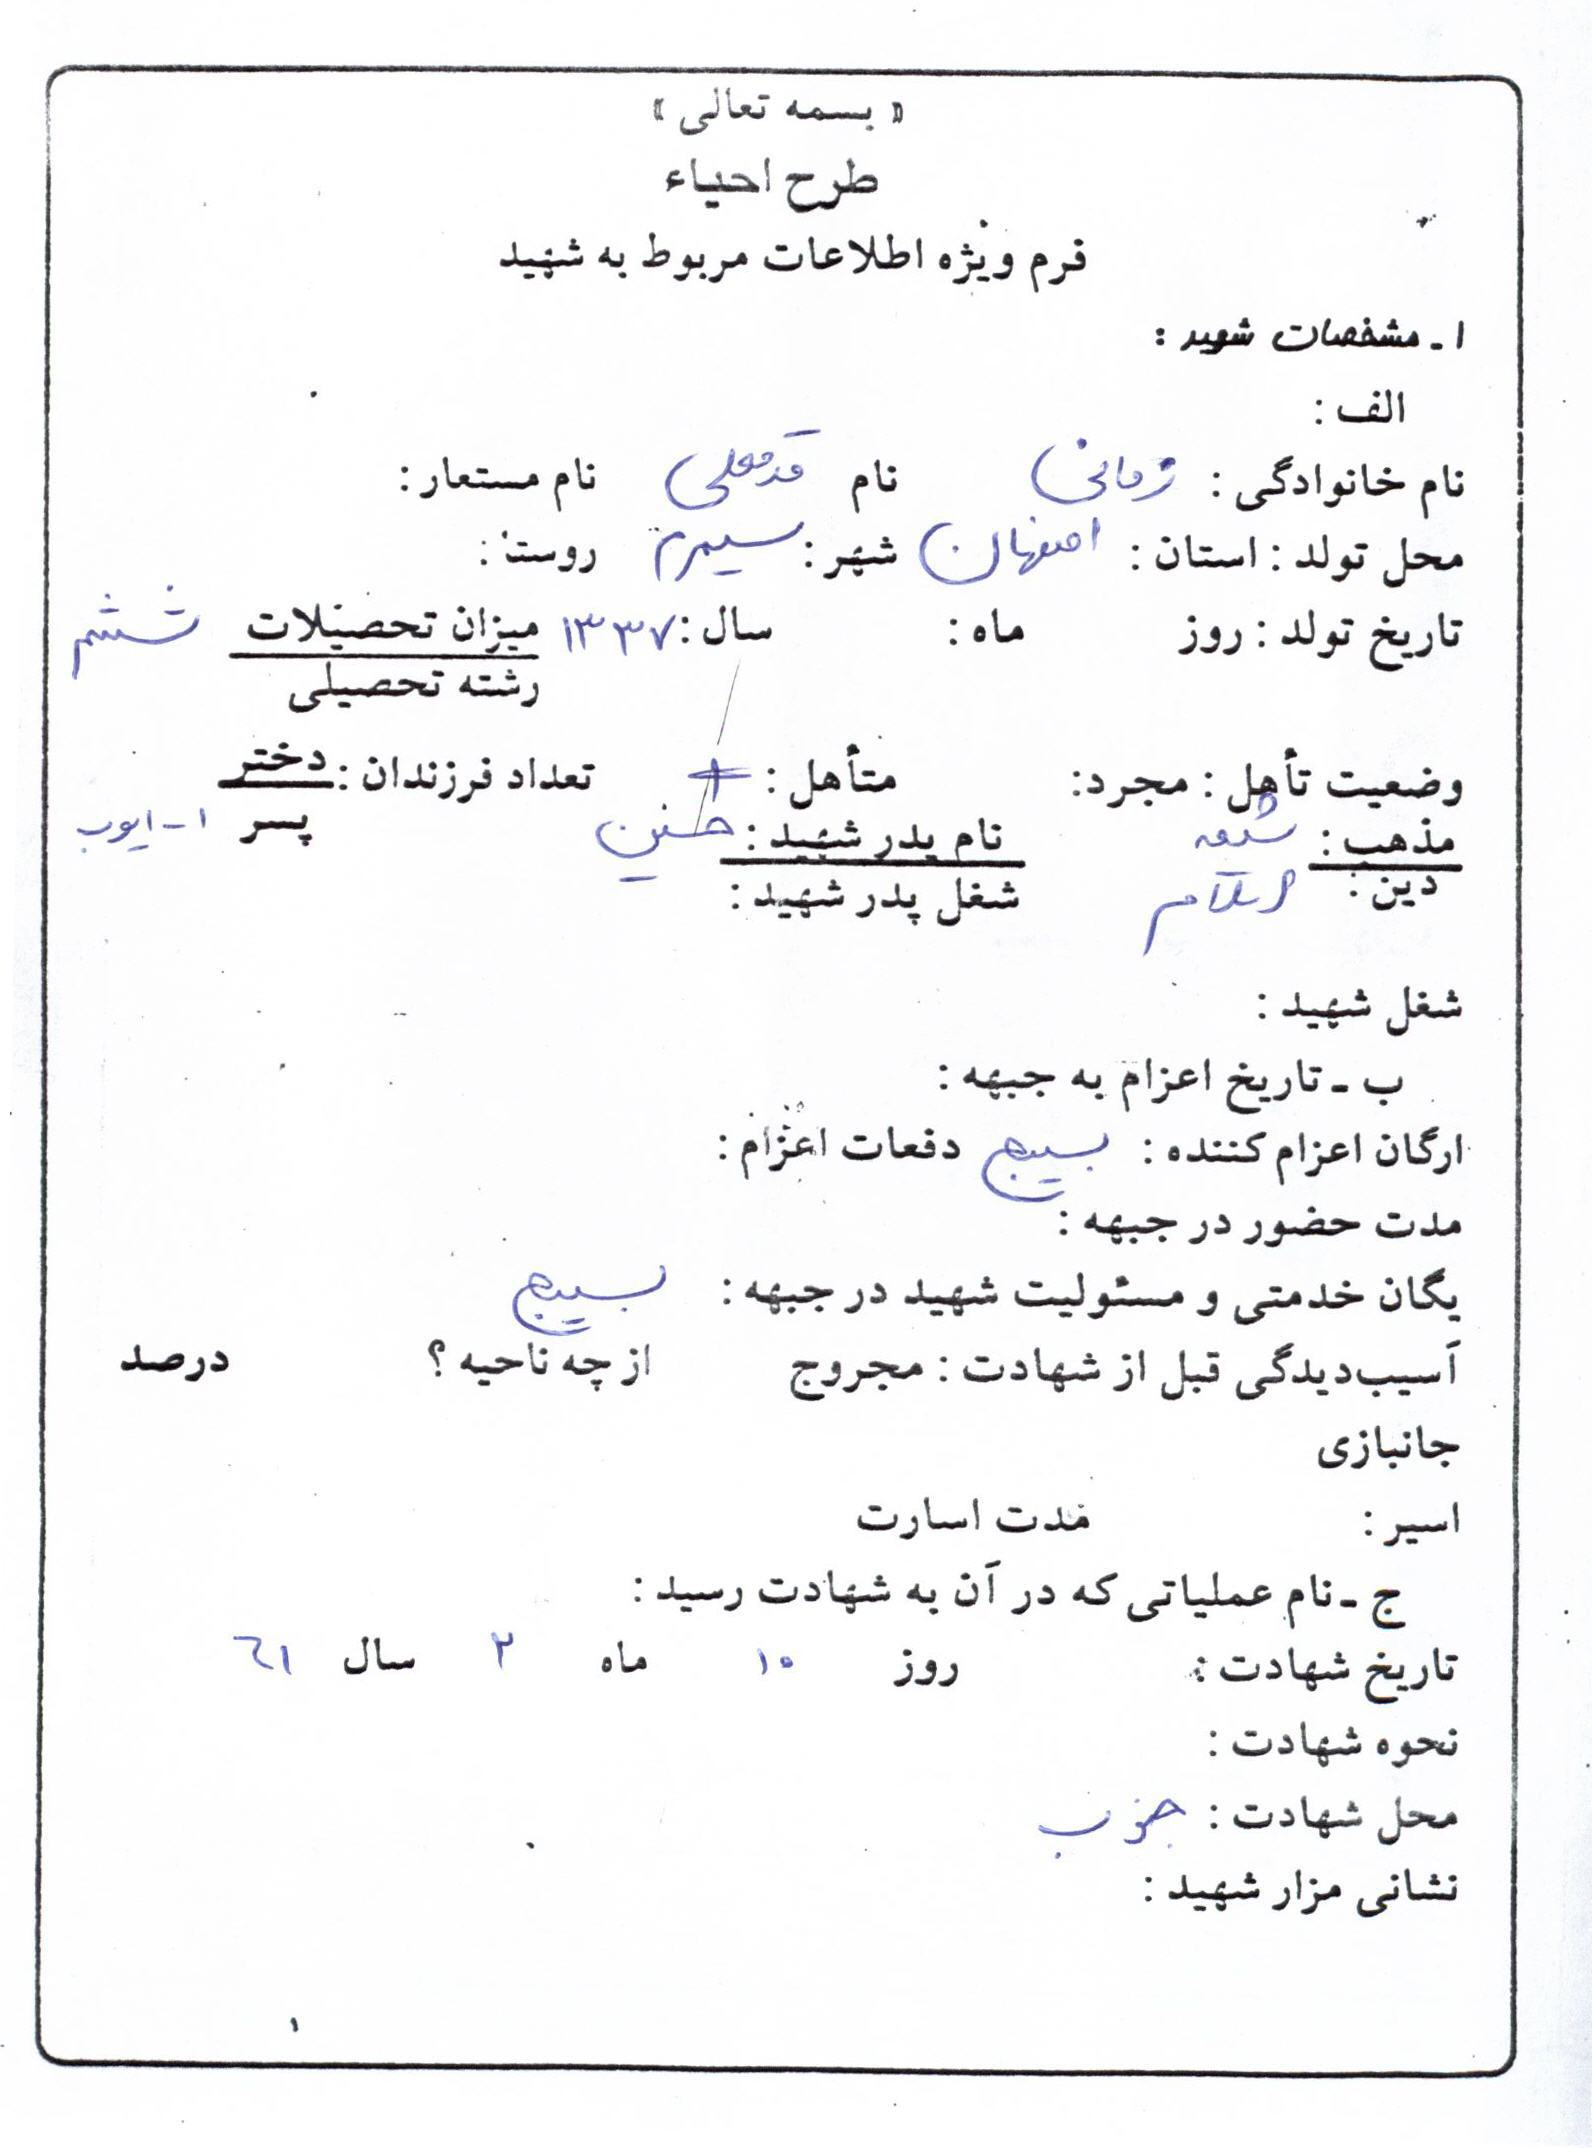 « بسمه تعالی »
طرح احیاء
فرم ویژه اطلاعات مربوط به شهید
۱ ـ مشخصات شهید :
الف :
نام خانوادگی : زمانی نام قدمعلی نام مستعار :
محل تولد : استان : اصفهان شهر : سمیرم روستا :
تاریخ تولد : روز ماه : سال : ۱۳۳۷ میزان تحصیلات ششم
رشته تحصیلی
وضعیت تأهل : مجرد : متأهل : + تعداد فرزندان : دختر
مذهب : شیعه نام پدر شهید : پسر ۱- ایوب
دین : اسلام شغل پدر شهید :
شغل شهید :
ب ـ تاریخ اعزام به جبهه :
ارگان اعزام کننده : بسیج دفعات اعزام :
مدت حضور در جبهه :
یگان خدمتی و مسئولیت شهید در جبهه : بسیج
آسیب‌دیدگی قبل از شهادت : مجروح از چه ناحیه ؟ درصد
جانبازی
اسیر : مدت اسارت
ج ـ نام عملیاتی که در آن به شهادت رسید :
تاریخ شهادت : روز ۱۰ ماه ۲ سال ۶۱
نحوه شهادت :
محل شهادت : جنوب
نشانی مزار شهید :
۱